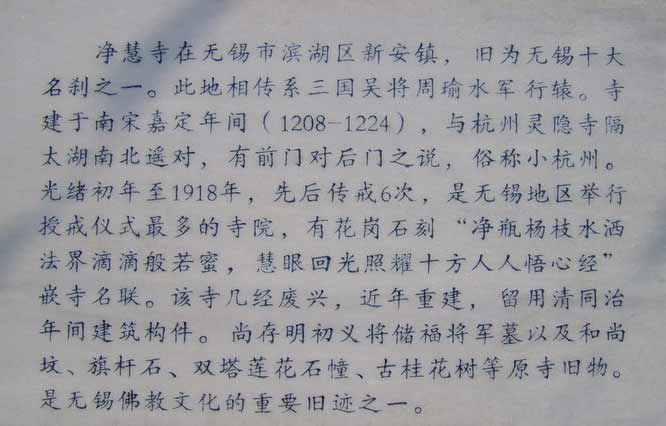 净慧寺在无锡市滨湖区新安镇，旧为无锡十大
名刹之一。此地相传系三国吴将周瑜水军行辕。寺
建于南宋嘉定年间（1208-1224），与杭州灵隐寺隔
太湖南北遥对，有前门对后门之说，俗称小杭州。
光绪初年至1918年，先后传戒6次，是无锡地区举行
授戒仪式最多的寺院，有花岗石刻“净瓶杨枝水洒
法界滴滴般若蜜，慧眼回光照耀十方人人悟心经”
嵌寺名联。该寺几经废兴，近年重建，留用清同治
年间建筑构件。尚存明初义将储福将军墓以及和尚
坟、旗杆石、双塔莲花石幢、古桂花树等原寺旧物。
是无锡佛教文化的重要旧迹之一。